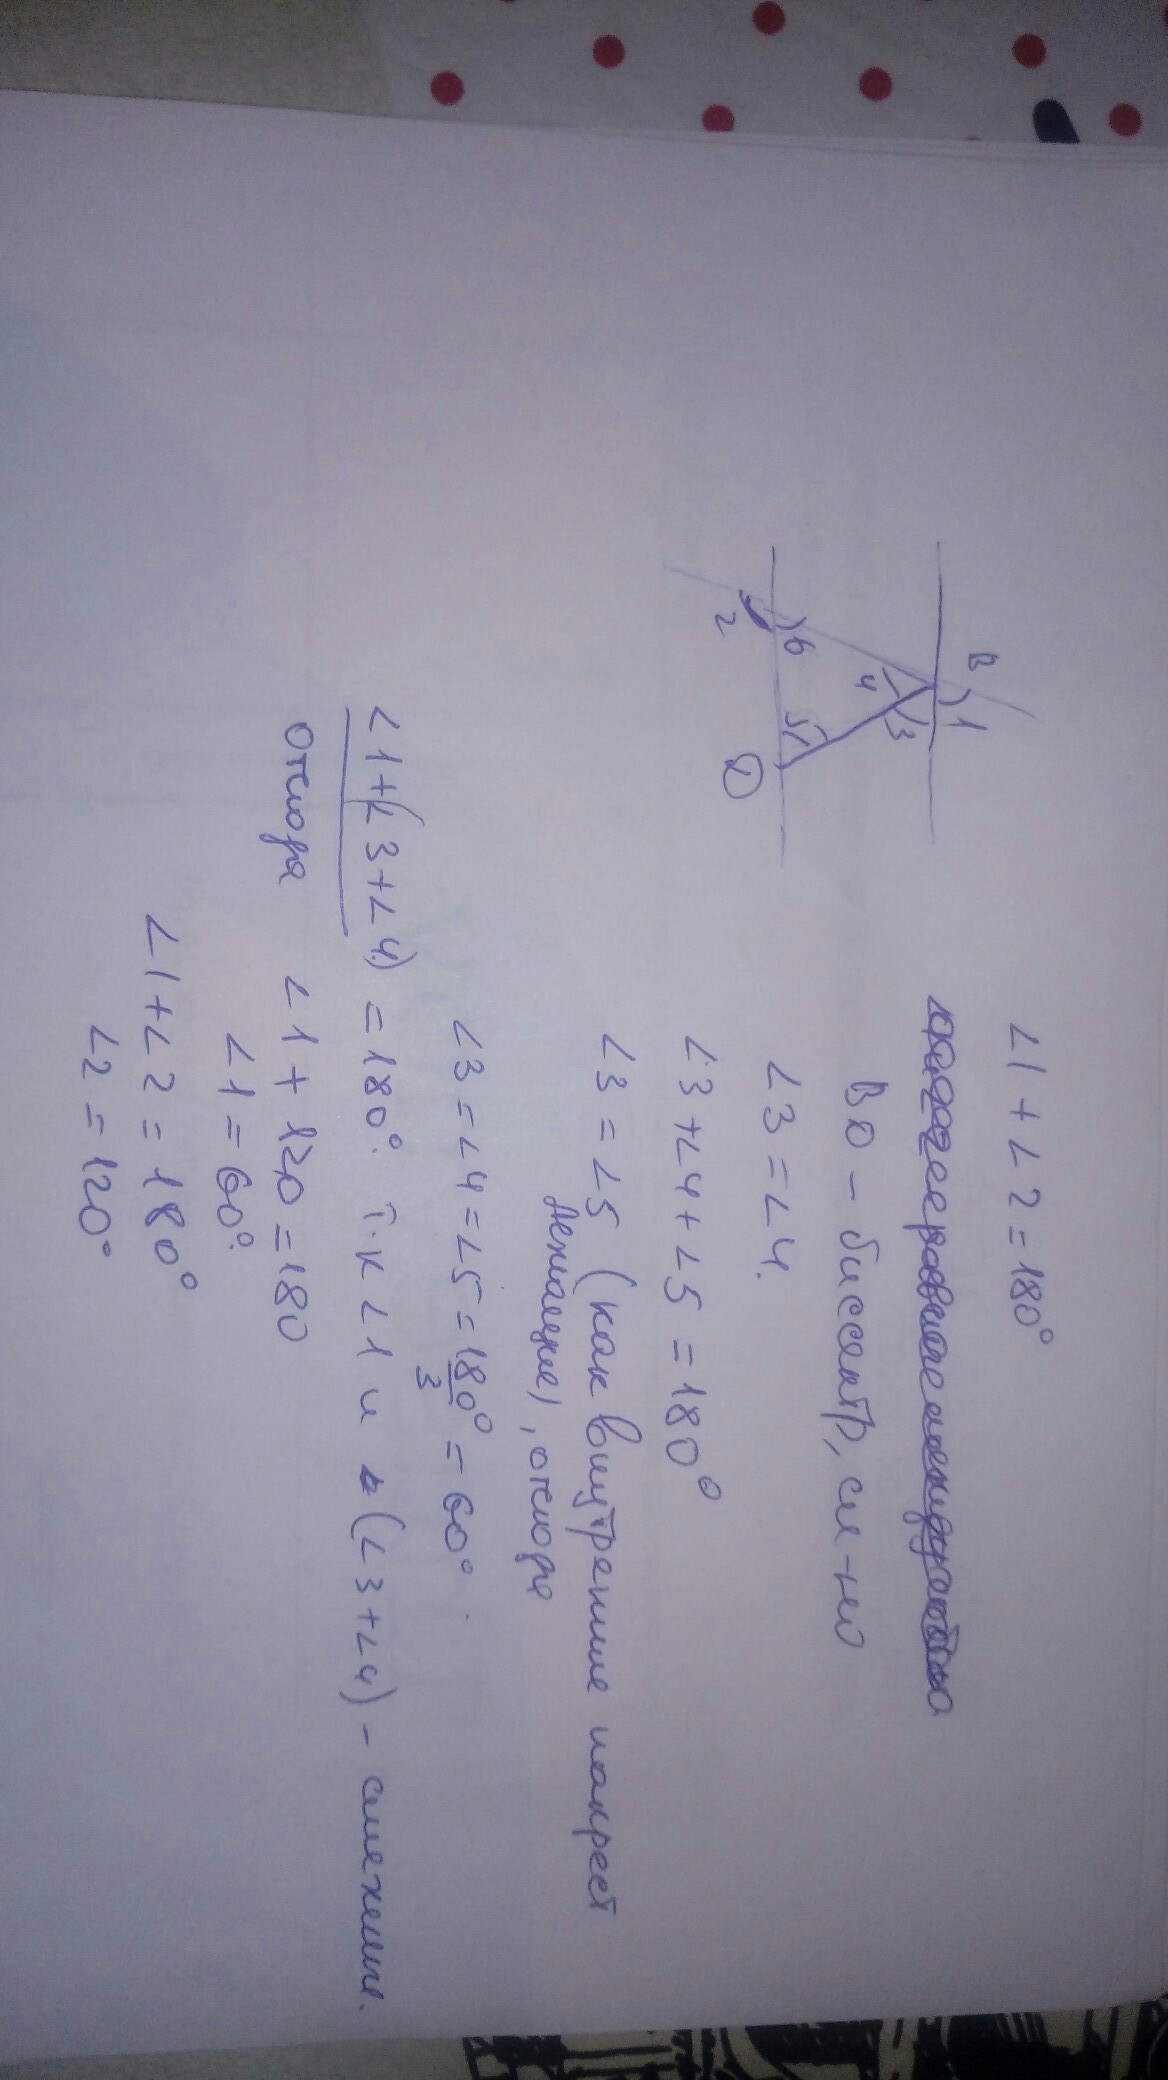 B
1
3
4
6
5
2
D
∠1+∠2=180°
BD – биссектр, сл-но
∠3=∠4.
∠3+∠4+∠5=180°
∠3=∠5 (как внутренние накрест
лежащие), отсюда
∠3=∠4=∠5=180°/3=60°.
∠1+(∠3+∠4)=180°. т.к ∠1 и (∠3+∠4) – смежные.
Отсюда ∠1+120=180
∠1=60°.
∠1+∠2=180°
∠2=120°